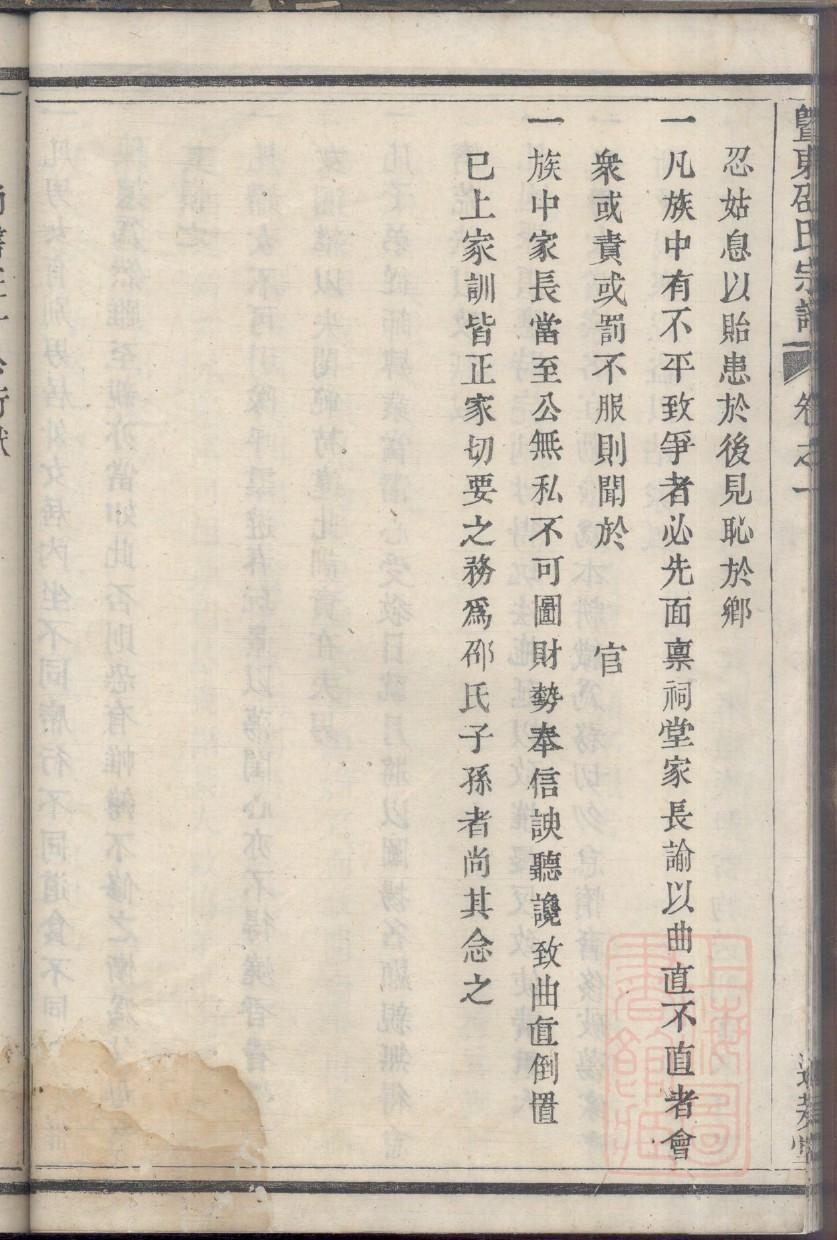 暨東邵氏宗譜 卷之一
忍姑息以貽患於後見恥於鄉
一凡族中有不平致爭者必先面禀祠堂家長諭以曲直不直者會
衆或責或罰不服則聞於 官
一族中家長當至公無私不可圖財勢奉信諛聽讒致曲直倒置
已上家訓皆正家切要之務爲邵氏子孫者尚其念之